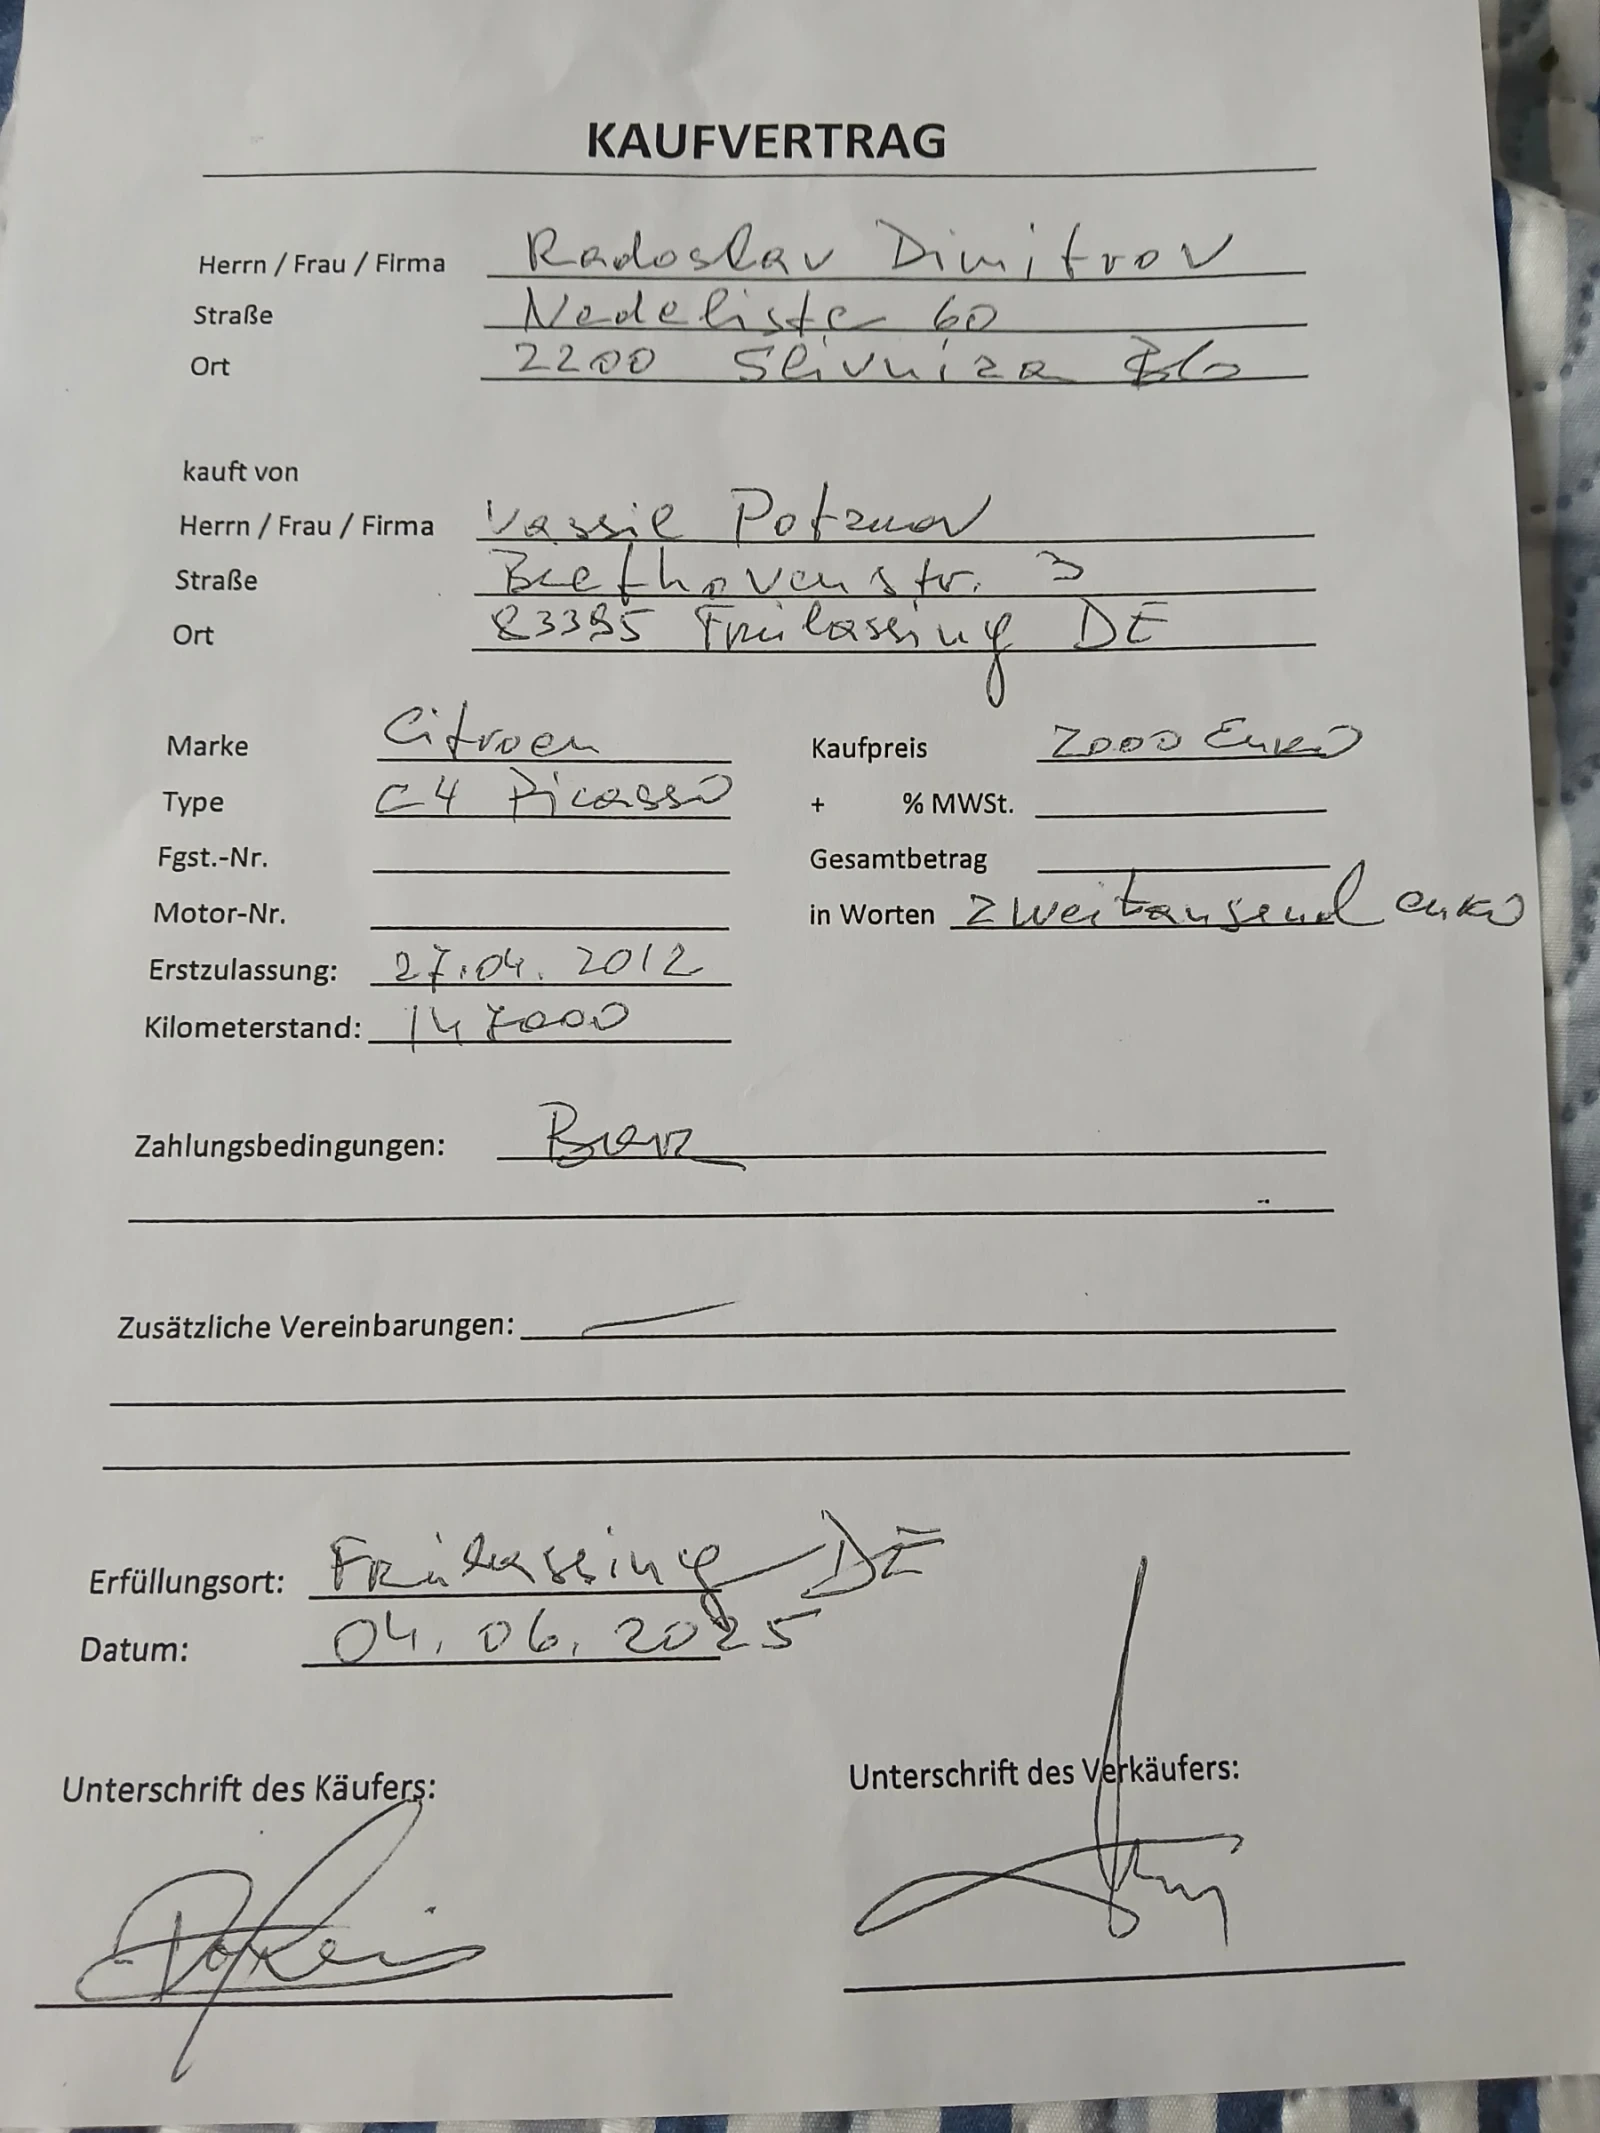 KAUFVERTRAG
Herrn / Frau / Firma Radoslav Dimitrov
Straße Nedeliste 60
Ort 2200 Slivniza
kauft von
Herrn / Frau / Firma Vassil
Straße Beethovenstr. 3
Ort 83395 Frülassing DE
Marke Citroen Kaufpreis 2000 Euro
Type C4 Picasso + % MWSt.
Fgst.-Nr. Gesamtbetrag
Motor-Nr. in Worten Zweitausend euro
Erstzulassung: 27.04.2012
Kilometerstand: 147000
Zahlungsbedingungen: Bar
Zusätzliche Vereinbarungen:
Erfüllungsort: Frülassing DE
Datum: 04.06.2025
Unterschrift des Käufers: Unterschrift des Verkäufers: